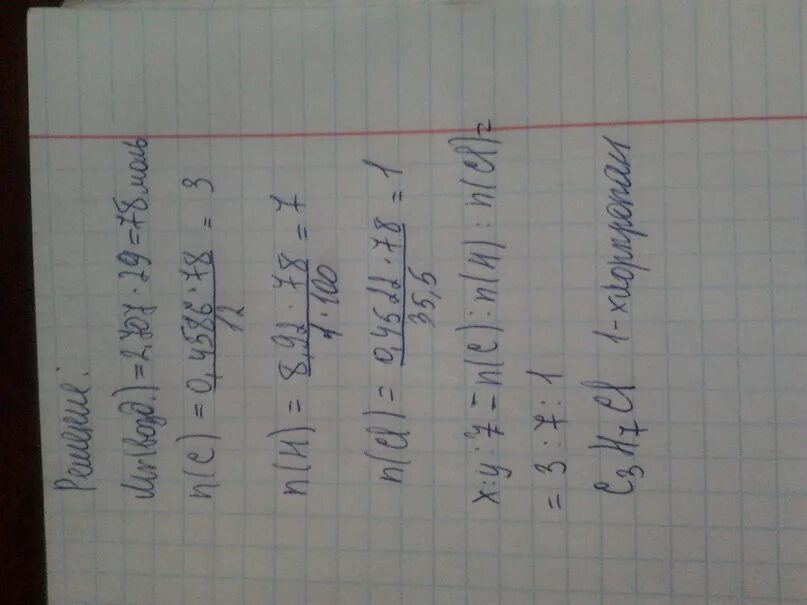 Решение:
Mr(возд.)=2,707·29=78 моль
n(C) = 0,4586·78 / 12 = 3
n(H) = 8,92·78 / 1·100 = 7
n(Cl) = 0,4522·78 / 35,5 = 1
x:y:z = n(C):n(H):n(Cl)=
= 3:7:1
C₃H₇Cl 1-хлорпропан